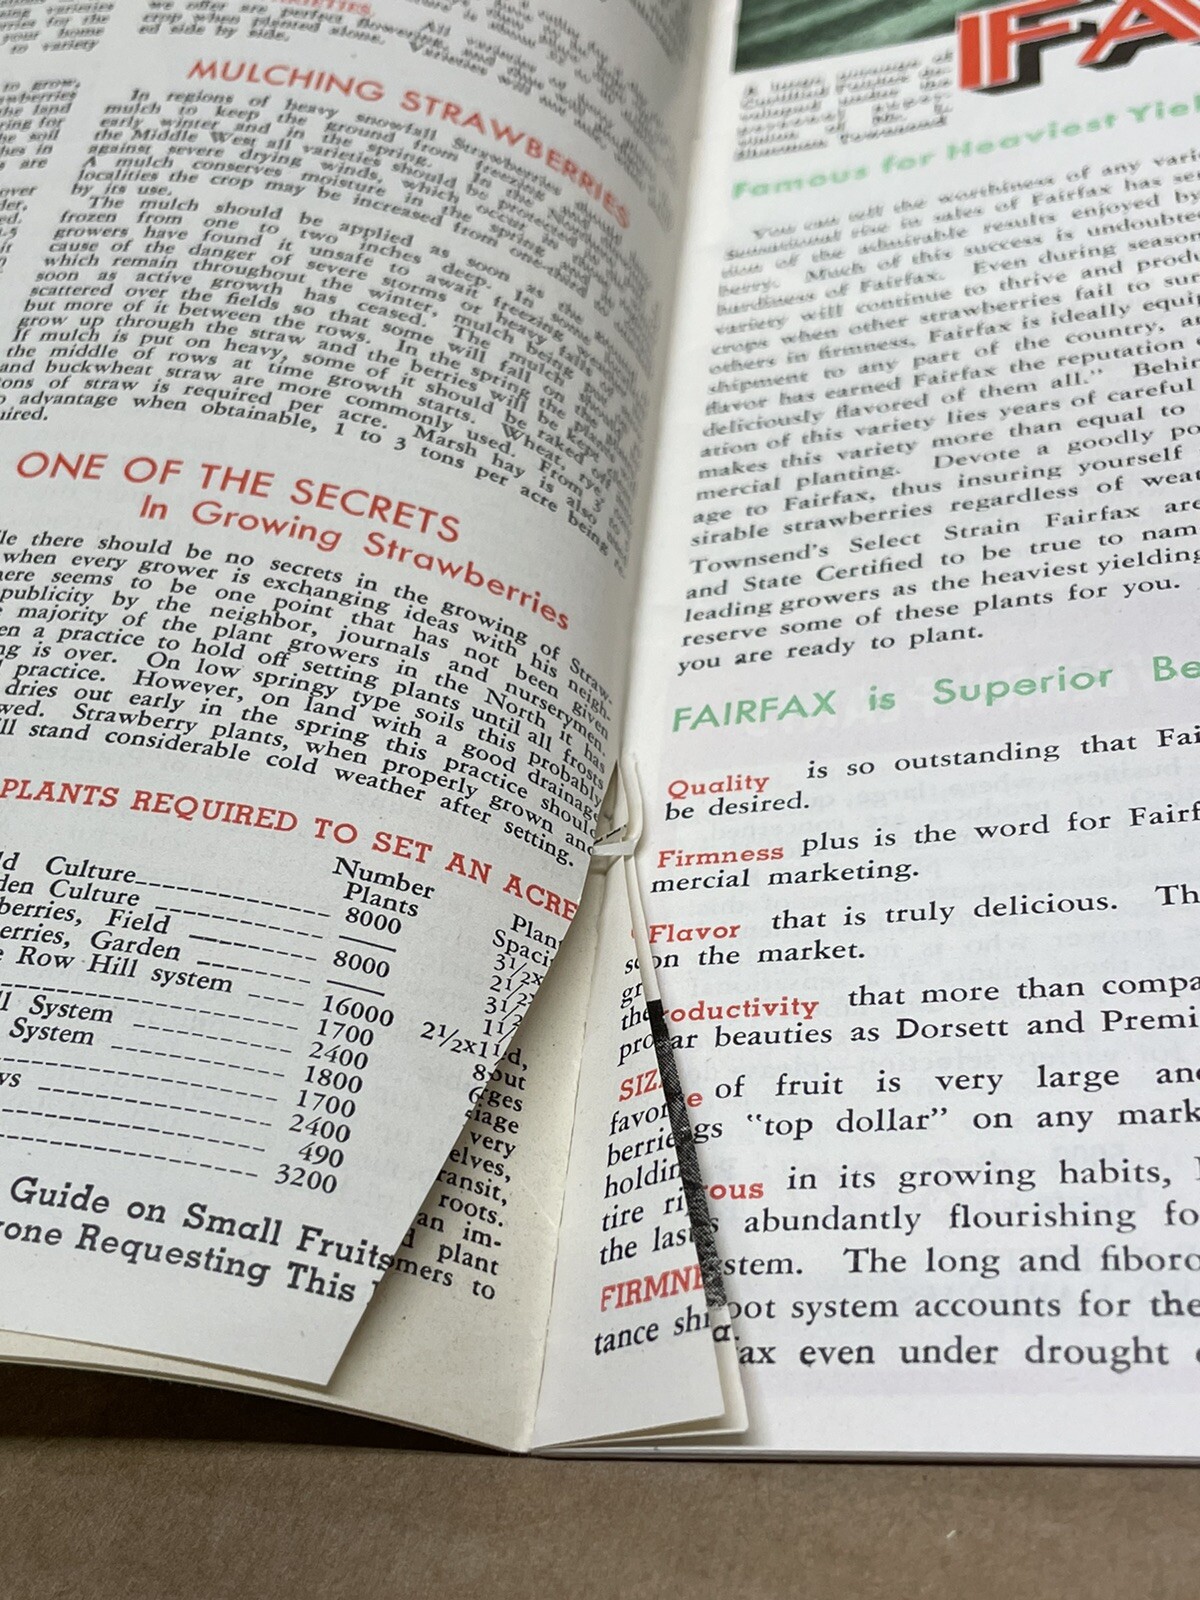 we offer are perfect flowering
crop when planted alone.
ed side by side.
your home
to variety
to grow,
the land
ring for
the soil
hes in
s are
MULCHING STRAWBERRIES
In regions of heavy snowfall Strawberries
mulch to keep the ground from freezing
early winter and in the spring. In the
the Middle West all varieties should be protected
against severe drying winds, which occur in
A mulch conserves moisture in the spring and
localities the crop may be increased from one-third
by its use.
The mulch should be applied as soon as the
frozen from one to two inches deep. In some
growers have found it unsafe to await freezing weather
cause of the danger of severe storms or heavy falls of
which remain throughout the winter, mulch being put
soon as active growth has ceased. The mulch
scattered over the fields so that some will fall on
but more of it between the rows. In the spring the
grow up through the straw and the berries will be kept
If mulch is put on heavy, some of it should be taken off
the middle of rows at time growth starts. Wheat, rye,
and buckwheat straw are more commonly used. From 3
ons of straw is required per acre. Marsh hay is also
o advantage when obtainable, 1 to 3 tons per acre being
uired.
ONE OF THE SECRETS
In Growing Strawberries
le there should be no secrets in the growing of Straw-
when every grower is exchanging ideas with his neigh-
here seems to be one point that has not been given
publicity by the neighbor, journals and nurserymen.
e majority of the plant growers in the North it has
en a practice to hold off setting plants until all frosts
ng is over. On low springy type soils this probably
practice. However, on land with a good drainage
dries out early in the spring this practice should
wed. Strawberry plants, when properly grown and
ll stand considerable cold weather after setting.
PLANTS REQUIRED TO SET AN ACRE
Number
Plants
Plan
Spaci
ld Culture 8000 3½x
den Culture 2½x
berries, Field 8000 3½
erries, Garden
e Row Hill system 16000 2½x1
1700
ll System 2400
System 1800
1700
ws 2400
490
3200
Guide on Small Fruits
one Requesting This
d,
out
ges
iage
very
elves,
ransit,
roots.
an im-
d plant
mers to
gr
the
pro
SIZ
favor
berrie
holdin
tire ri
the las
FIRMNE
tance shi
FA
A large acreage of
Certified Fairfax de-
veloped under the
Famous for Heaviest Yiel
You can tell the worthiness of any vari
sensational rise in sales of Fairfax has se
tion of the admirable results enjoyed by
berry. Much of this success is undoubte
hardiness of Fairfax. Even during season
variety will continue to thrive and produ
crops when other strawberries fail to sur
others in firmness, Fairfax is ideally equi
shipment to any part of the country, a
flavor has earned Fairfax the reputation
deliciously flavored of them all." Behin
ation of this variety lies years of careful
makes this variety more than equal to
mercial planting. Devote a goodly po
age to Fairfax, thus insuring yourself
sirable strawberries regardless of weat
Townsend's Select Strain Fairfax are
and State Certified to be true to nam
leading growers as the heaviest yielding
reserve some of these plants for you.
you are ready to plant.
FAIRFAX is Superior Be
Quality is so outstanding that Fai
be desired.
Firmness plus is the word for Fairf
mercial marketing.
Flavor that is truly delicious. Th
on the market.
roductivity that more than compa
ar beauties as Dorsett and Premi
e of fruit is very large an
gs "top dollar" on any mark
rous in its growing habits,
s abundantly flourishing fo
stem. The long and fiboro
oot system accounts for the
ax even under drought